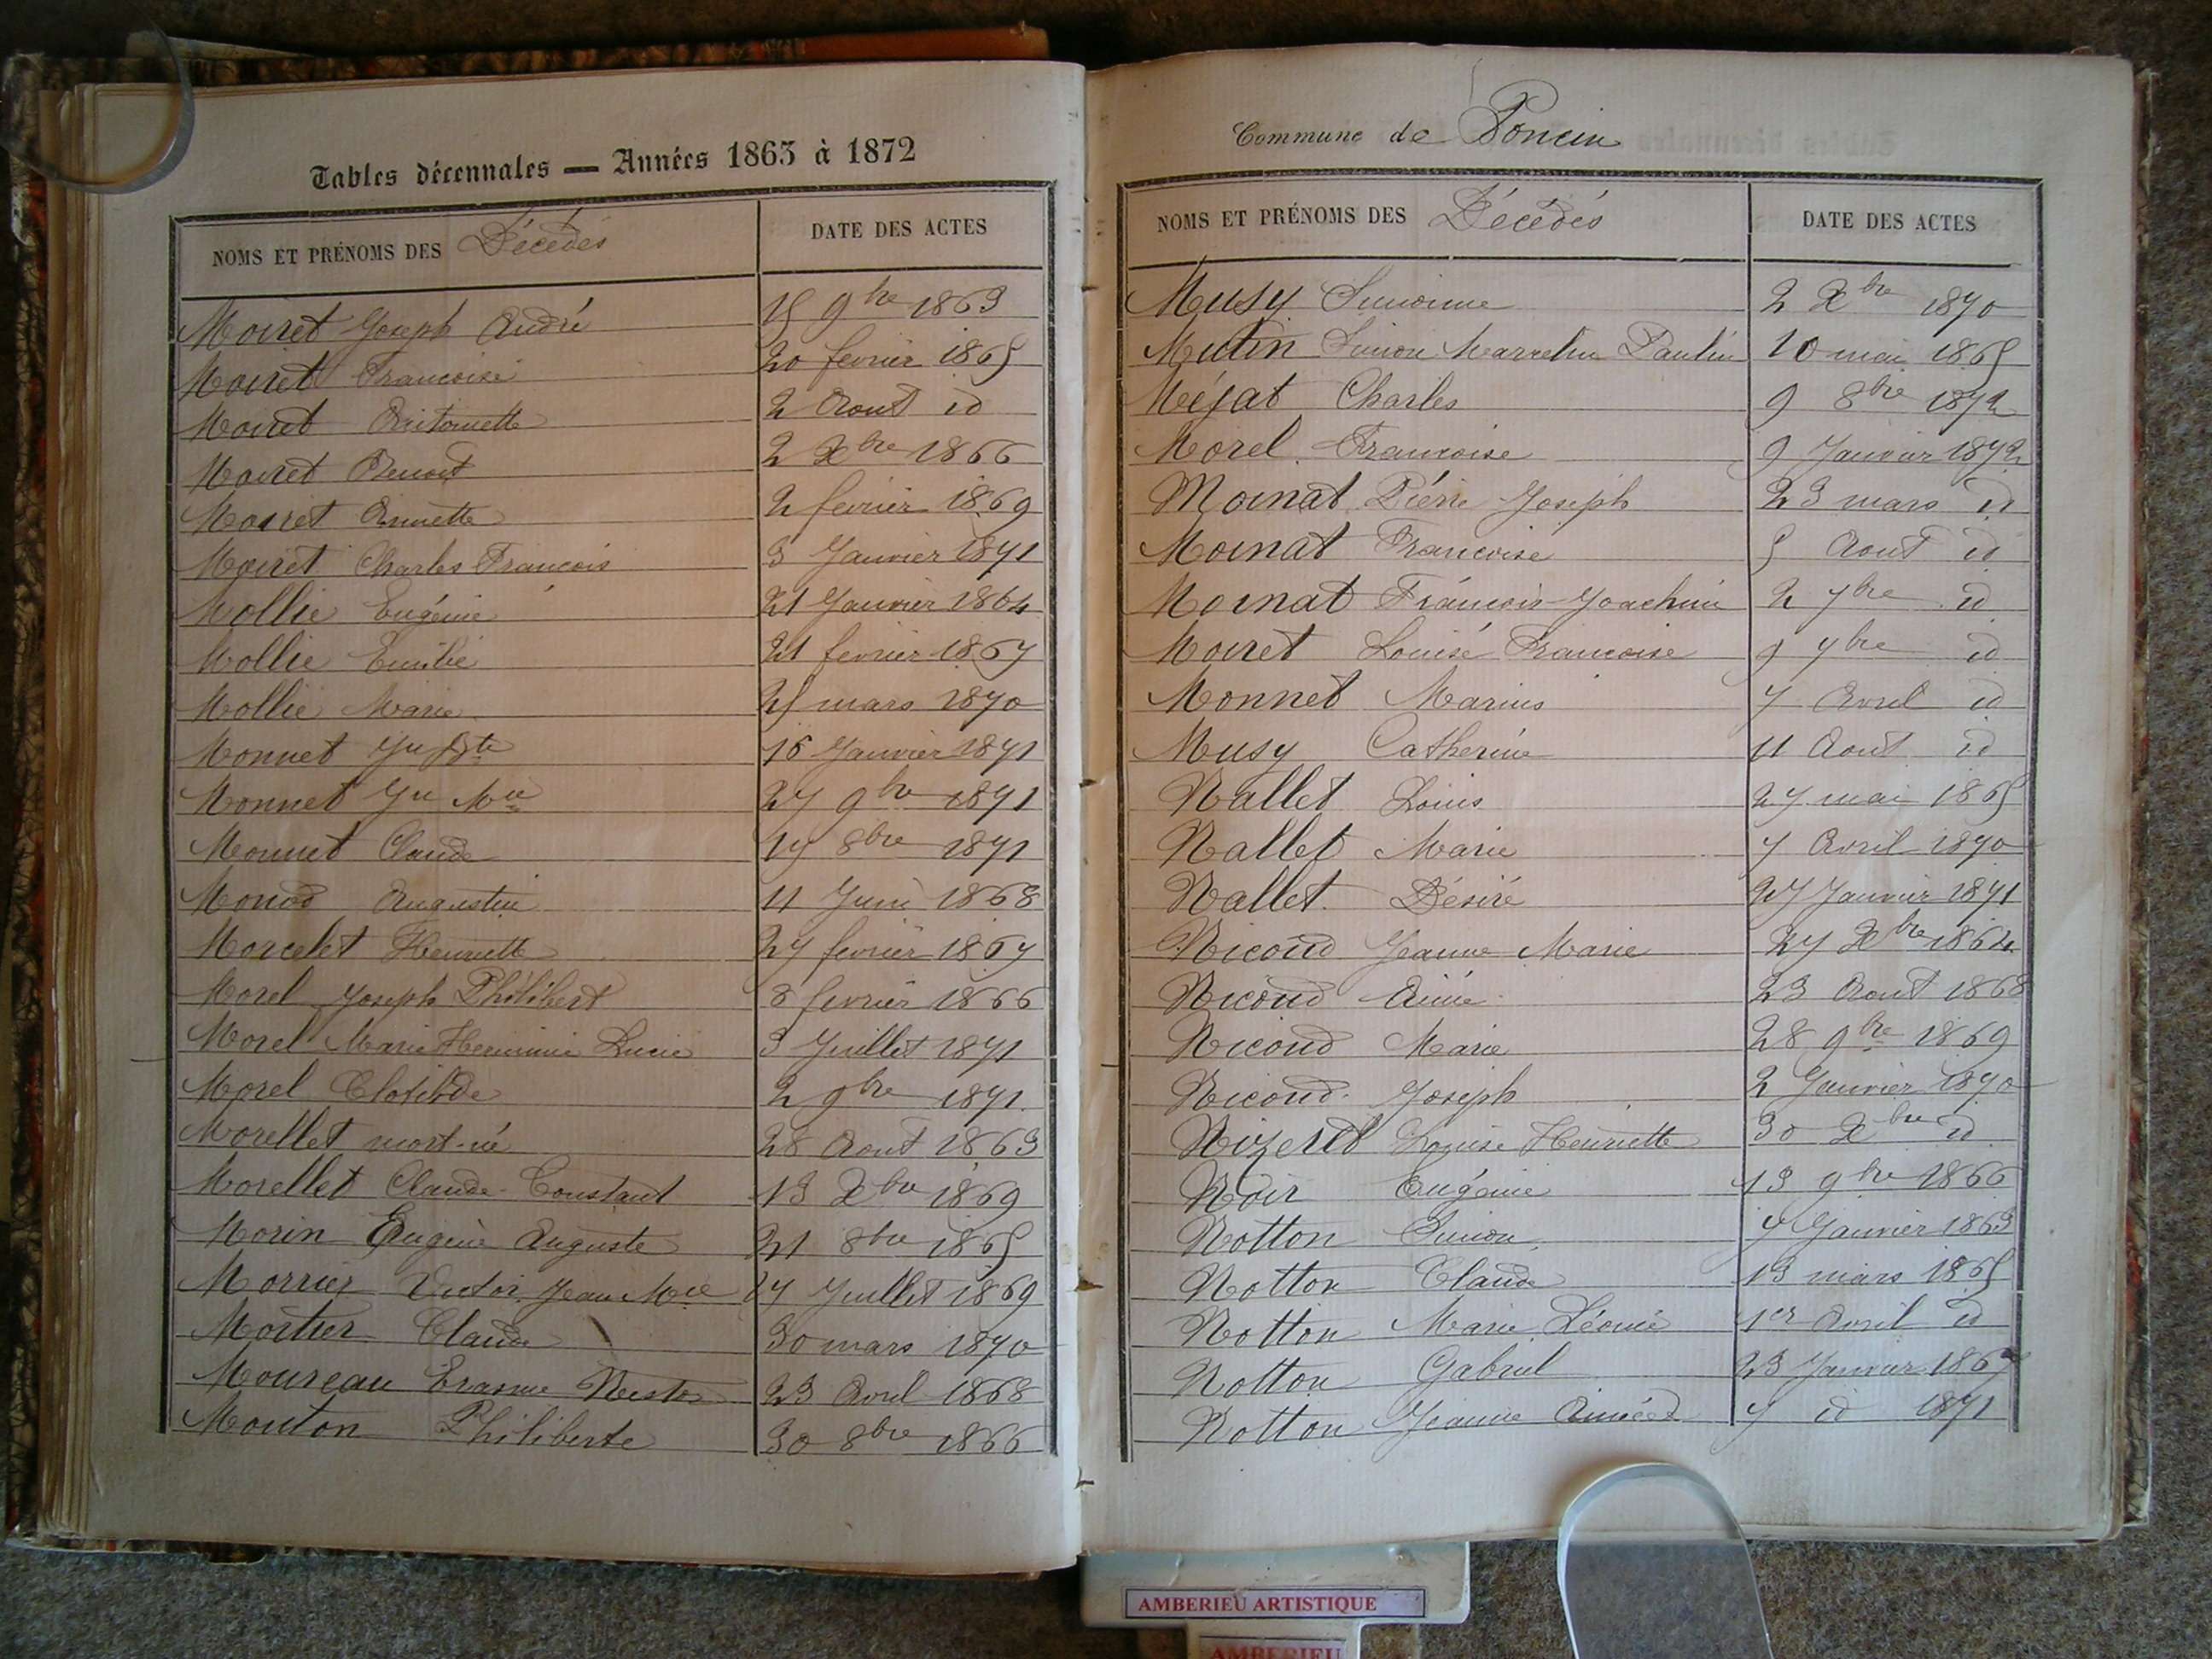 Tables décennales — Années 1863 à 1872
NOMS ET PRÉNOMS DES Décédés DATE DES ACTES
Moiret Joseph André 15 9bre 1863
Moiret Francoise 20 fevrier 1865
Moiret Antoinette 2 Aout id
Moiret Benoit 2 Xbre 1866
Moiret Annette 2 fevrier 1869
Moiret Charles Francois 3 Janvier 1871
Mollie Eugénie 21 Janvier 1864
Mollie Emilie 21 fevrier 1867
Mollie Marie 25 mars 1870
Monnet Jn Bte 16 Janvier 1871
Monnet Jn Mie 27 9bre 1871
Monnet Claude 17 8bre 1871
Monod Augustin 11 Juin 1868
Morcelet Henriette 27 fevrier 1867
Morel Joseph Philibert 8 fevrier 1866
Morel Marie Herminie Lucie 3 Juillet 1871
Morel Clotilde 2 9bre 1871
Morellet mort-né 28 Aout 1863
Morellet Claude-Constant 13 Xbre 1869
Morin Eugène Auguste 21 8bre 1865
Morrier Victor Jean Mie 27 Juillet 1869
Mortier Claude 30 mars 1870
Moureau Erasme Nestor 23 Avril 1868
Mouton Philiberte 30 8bre 1866
Commune de Poncin
NOMS ET PRÉNOMS DES Décédés DATE DES ACTES
Musy Simonne 2 Xbre 1870
Mutin Simon Marcelin Paulin 10 mai 1865
Méjat Charles 9 8bre 1872
Morel Francoise 9 Janvier 1872
Moinat Piérre Joseph 23 mars id
Moinat Francoise 5 Aout id
Moinat Francois-Joachim 2 7bre id
Moiret Louise Francoise 9 7bre id
Monnet Marius 7 Avril id
Musy Catherine 11 Aout id
Nallet Louis 27 mai 1865
Nallet Marie 7 Avril 1870
Nallet Désiré 27 Janvier 1871
Nicoud Jeanne Marie 27 Xbre 1864
Nicoud Aimé 23 Aout 1868
Nicoud Marie 28 9bre 1869
Nicoud Joseph 2 Janvier 1870
Nizeret Louise Henriette 30 Xbre id
Noir Eugénie 13 9bre 1866
Notton Simon 7 Janvier 1863
Notton Claude 13 mars 1865
Notton Marie Léonie 1er Avril id
Notton Gabriel 23 Janvier 1867
Notton Jeanne Aimée 7 id 1871
AMBERIEU ARTISTIQUE
AMBERIEU